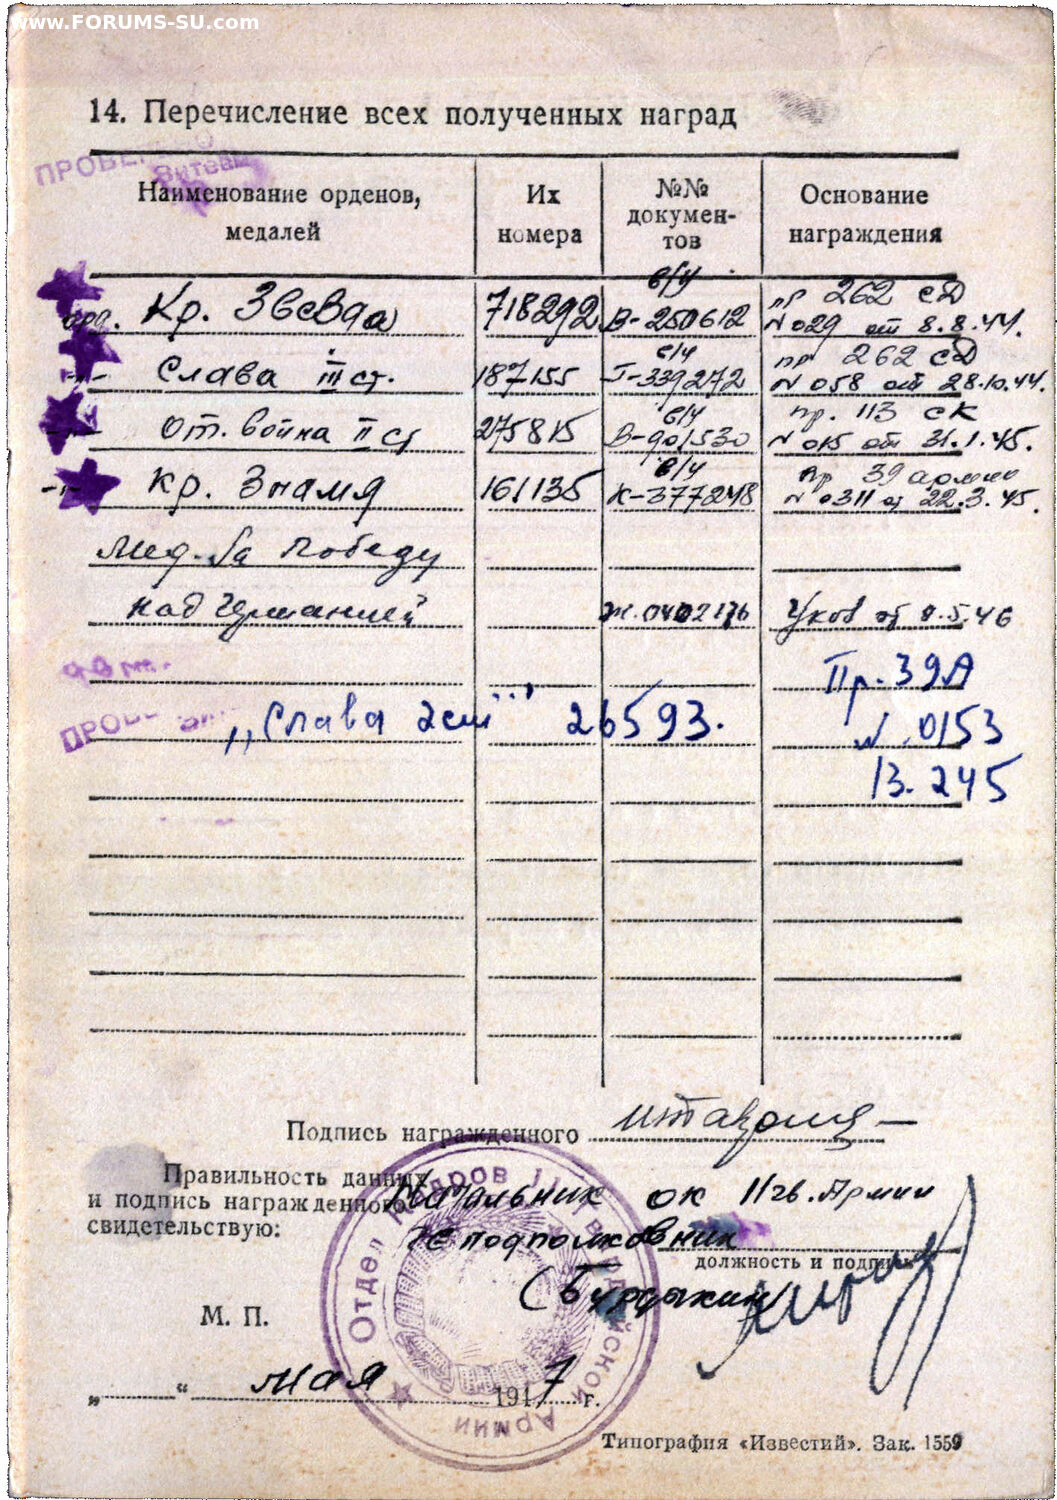 www.FORUMS-SU.com
14. Перечисление всех полученных наград
Наименование орденов, медалей
Их номера
№№ докумен-тов
Основание награждения
орд. Кр. Звезда 718292 в/у В-250612 пр 262 сд № 029 от 8.8.44.
-"- Слава III ст. 187155 в/у Г-339272 пр 262 сд № 058 от 28.10.44.
-"- От. война II ст 275815 в/у В-901530 пр. 113 ск № 015 от 31.1.45.
-"- Кр. Знамя 161135 в/у К-377248 пр 39 армии № 0311 от 22.3.45.
Мед. За Победу
над Германией Ж.0402176 Указ от 9.5.46
Пр. 39А
„Слава 2ст" 26593. № 0153
13.245
Подпись награжденного
Правильность данных
и подпись награжденного Начальник ОК 11 гв. Армии
свидетельствую: подполковник
должность и подпись
(Бурдыкин
М. П.
„ “ мая 1947 г.
Отдел Кадров 11 Гвардейской Армии
Типография «Известий». Зак. 1559